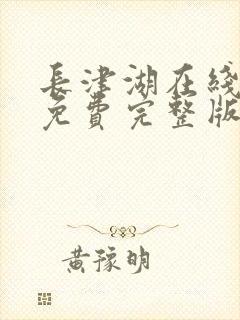 長津湖在綫
免費完整版
黃豫明